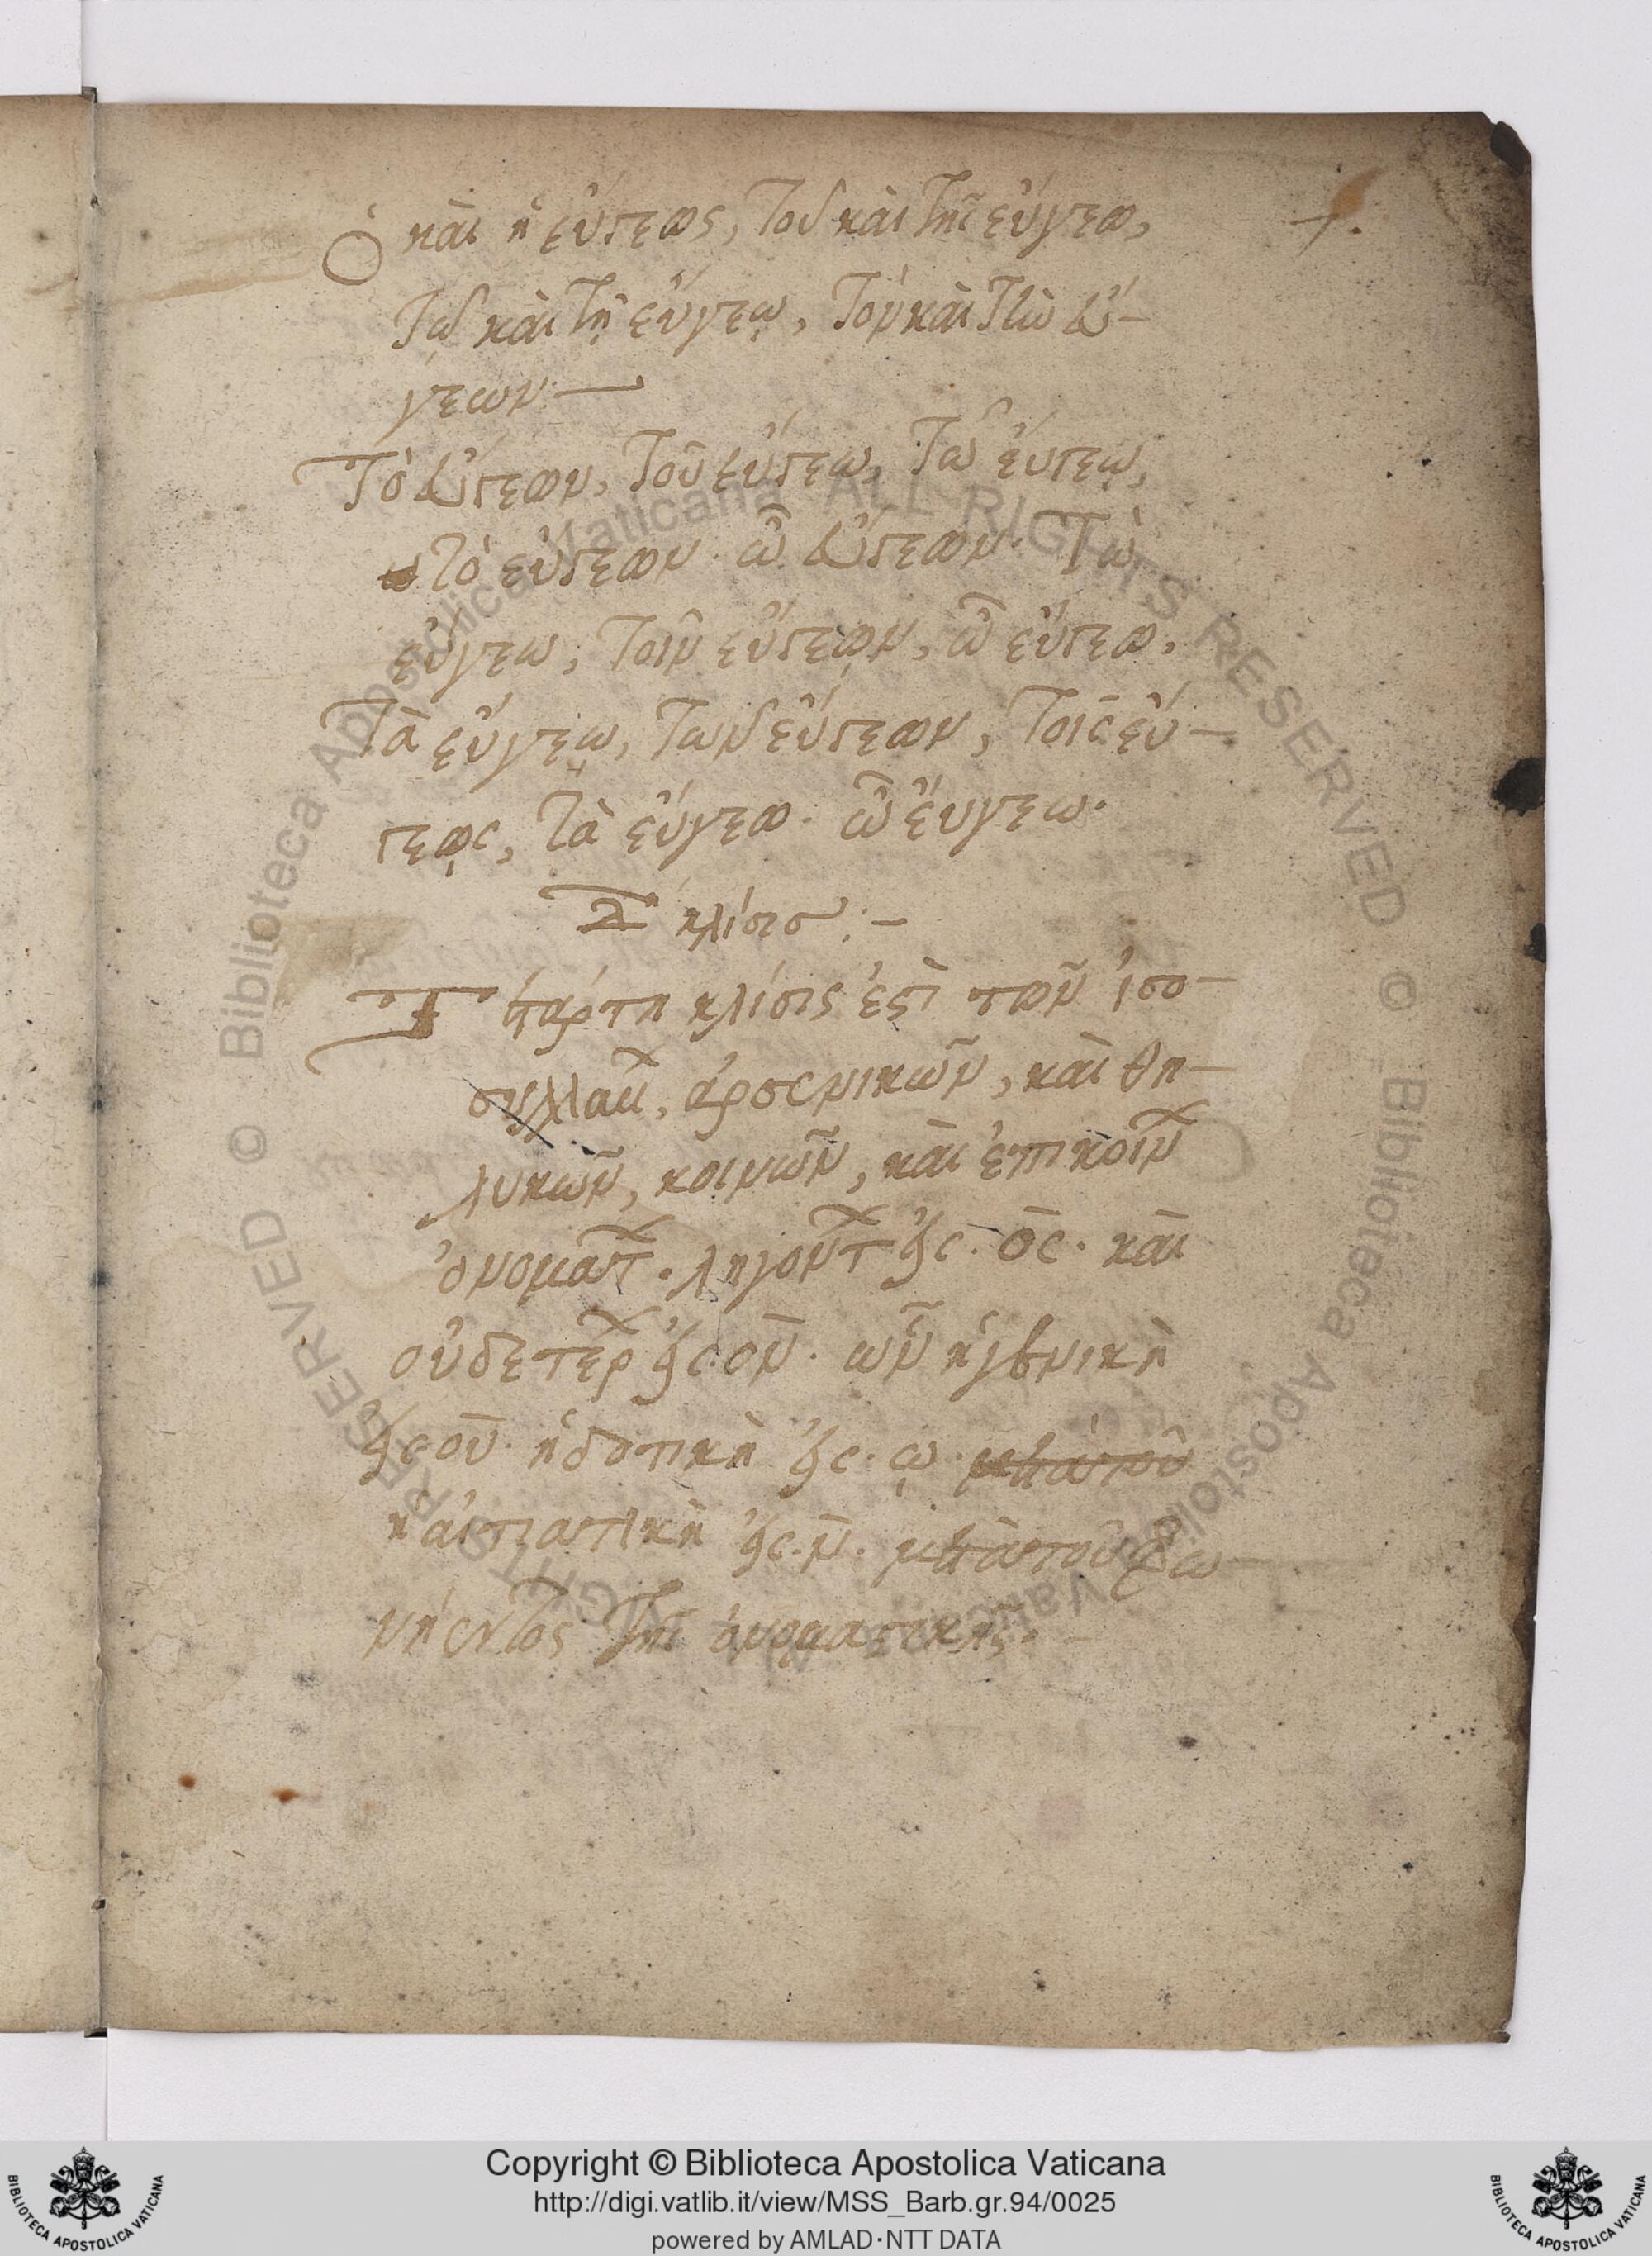 Ὁ καὶ ἡ εὔγεως, τοῦ καὶ τῆς εὔγεω,
τῷ καὶ τῇ εὔγεῳ, τὸν καὶ τὴν εὔ-
γεων
7.
Τὸ εὔγεων, τοῦ εὔγεω, τῷ εὔγεῳ,
τὸ εὔγεων. ὦ εὔγεων. Τὼ
εὔγεω, τοῖν εὔγεῳν, ὦ εὔγεω.
Τὰ εὔγεω, τῶν εὔγεων, τοῖς εὔ-
γεῳς, τὰ εὔγεω. ὦ εὔγεω.
Δ κλίσισ :-
Τετάρτη κλίσις ἐστὶ τῶν ἰσο-
συλλαβ, ἀρσενικῶν, καὶ θη-
λυκῶν, κοινῶν, καὶ ἐπικοίν
ὀνοματ. ληγοντ εἰς. ος. καὶ
οὐδετερ εἰς ον. ὧν ἡ γενικὴ
εἰς ου. ἡ δοτικὴ εἰς. ῳ. μετὰ τοῦ
ἡ αἰτιατικὴ εἰς. ν. μετὰ τοῦ φω
νήεντος τῆς ὀνομαστικῆς.
Copyright © Biblioteca Apostolica Vaticana
http://digi.vatlib.it/view/MSS_Barb.gr.94/0025
powered by AMLAD·NTT DATA
BIBLIOTECA APOSTOLICA VATICANA
BIBLIOTECA APOSTOLICA VATICANA
© Biblioteca Apostolica Vaticana ALL RIGHTS RESERVED © Biblioteca Apostolica Vaticana ALL RIGHTS RESERVED